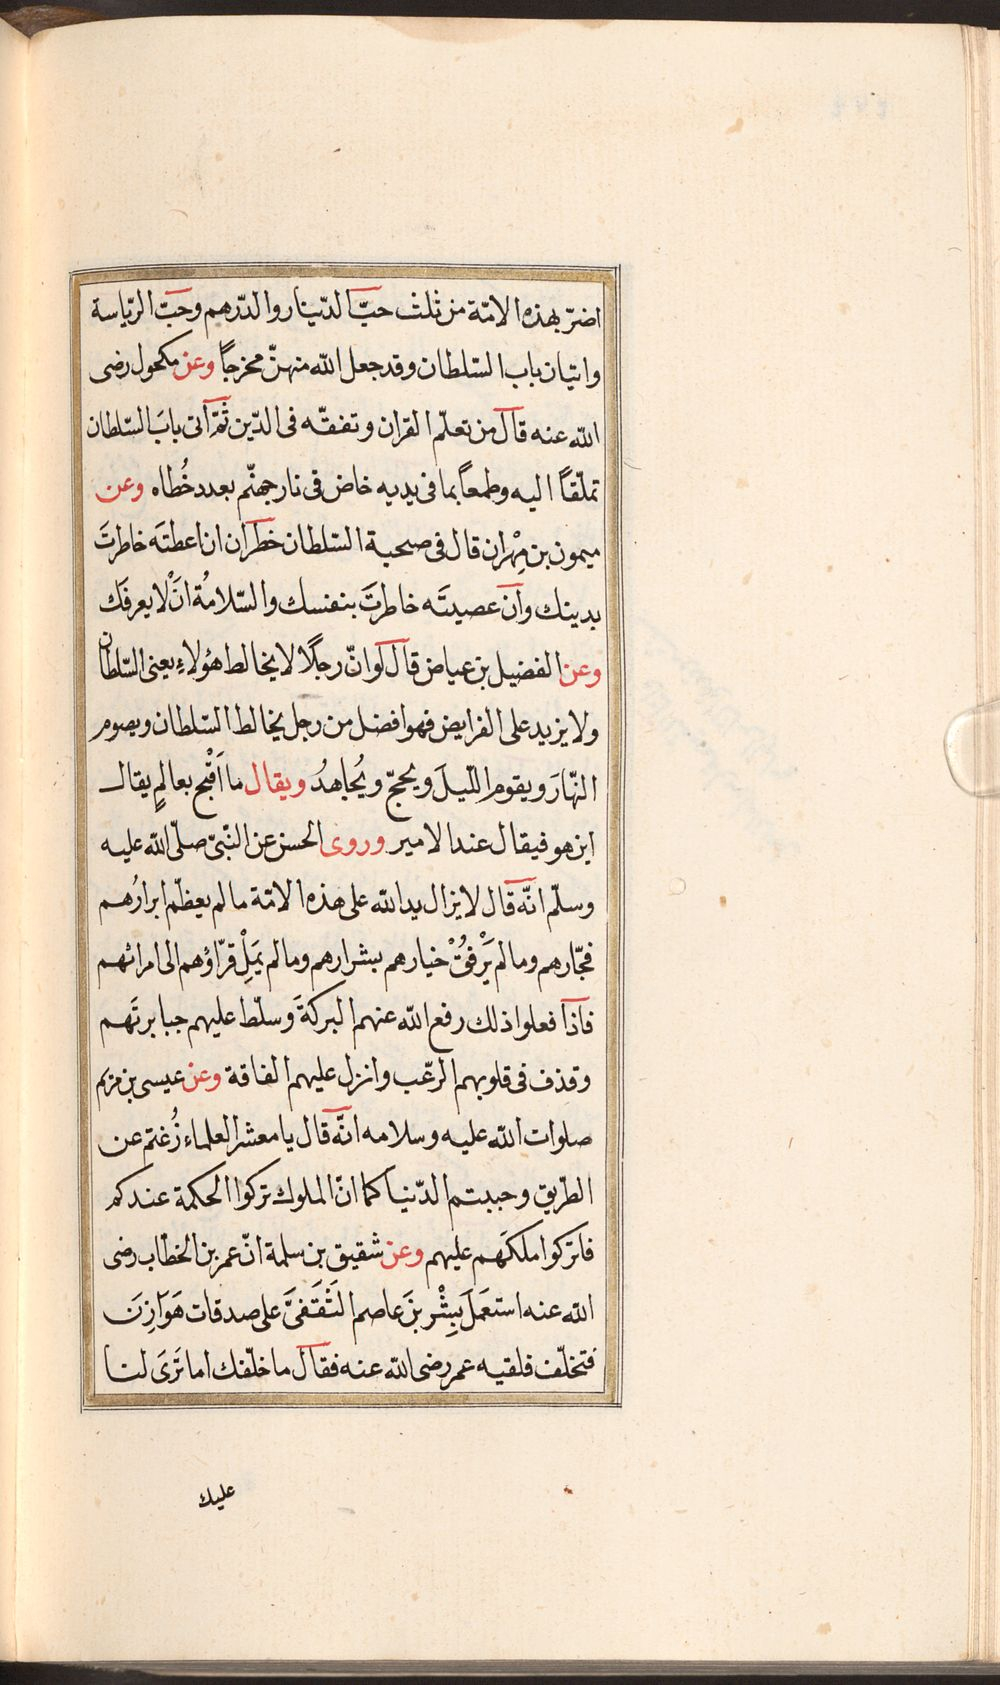 اضرّ بهذه الامّة من ثلث حبّ الدّينار والدّرهم وحبّ الرّياسة
واتيان باب السّلطان وقد جعل اللّه منهنّ مخرجاً وعن مكحول رضى
اللّه عنه قال من تعلّم القران وتفقّه فى الدّين ثمّ اتى بابَ السّلطان
تملّقاً اليه وطمعاً بما فى يديه خاض فى نار جهنّم بعدد خُطاه وعن
ميمون بن مِهْران قال فى صحبة السّلطان خطران ان اعطتَه خاطرتَ
بدينك وان عصيتَه خاطرتَ بنفسك والسّلامُة انْ لا يعرفَك
وعن الفضيل بن عياض قال لو انّ رجلًا لا يخالط هؤلاءِ يعنى السّلطان
ولا يزيد على الفرايض فهو افضل من رجل يخالط السّلطان ويصوم
النّهارَ ويقوم اللّيلَ ويحجّ ويُجاهدُ ويقال ما اَقْبح بعالمٍ يقال
اين هو فيقال عند الامير وروى الحسن عن النّبىّ صلّى اللّه عليه
وسلّم انّه قال لا يزال يد اللّه على هذه الامّة ما لم يعظّم ابرارُهم
فجّارهم وما لم يَرْفُقْ خيارهم بشرارهم وما لم يَمِلْ قرّاؤهم الى امرائهم
فاذا فعلوا ذلك رفع اللّه عنهم البركةَ وسلّط عليهم جبابرتَهم
وقذف فى قلوبهم الرعّب وانزل عليهم الفاقة وعن عيسى بن مريم
صلوات اللّه عليه وسلامه انّه قال يا معشر العلماء زُغتم عن
الطّريق وحببتم الدّنيا كما انّ الملوك تركوا الحكمة عندكم
فاتركوا ملكَهم عليهم وعن شقيق بن سلمة انّ عمر بن الخطّاب رضى
اللّه عنه استعَملَ بِشْر بنَ عاصم الثَقَفىَّ على صدقات هَوَازِنَ
فتخلّف فلقيه عمر رضى اللّه عنه فقال ما خلّفك اما تَرَى لنا
عليك